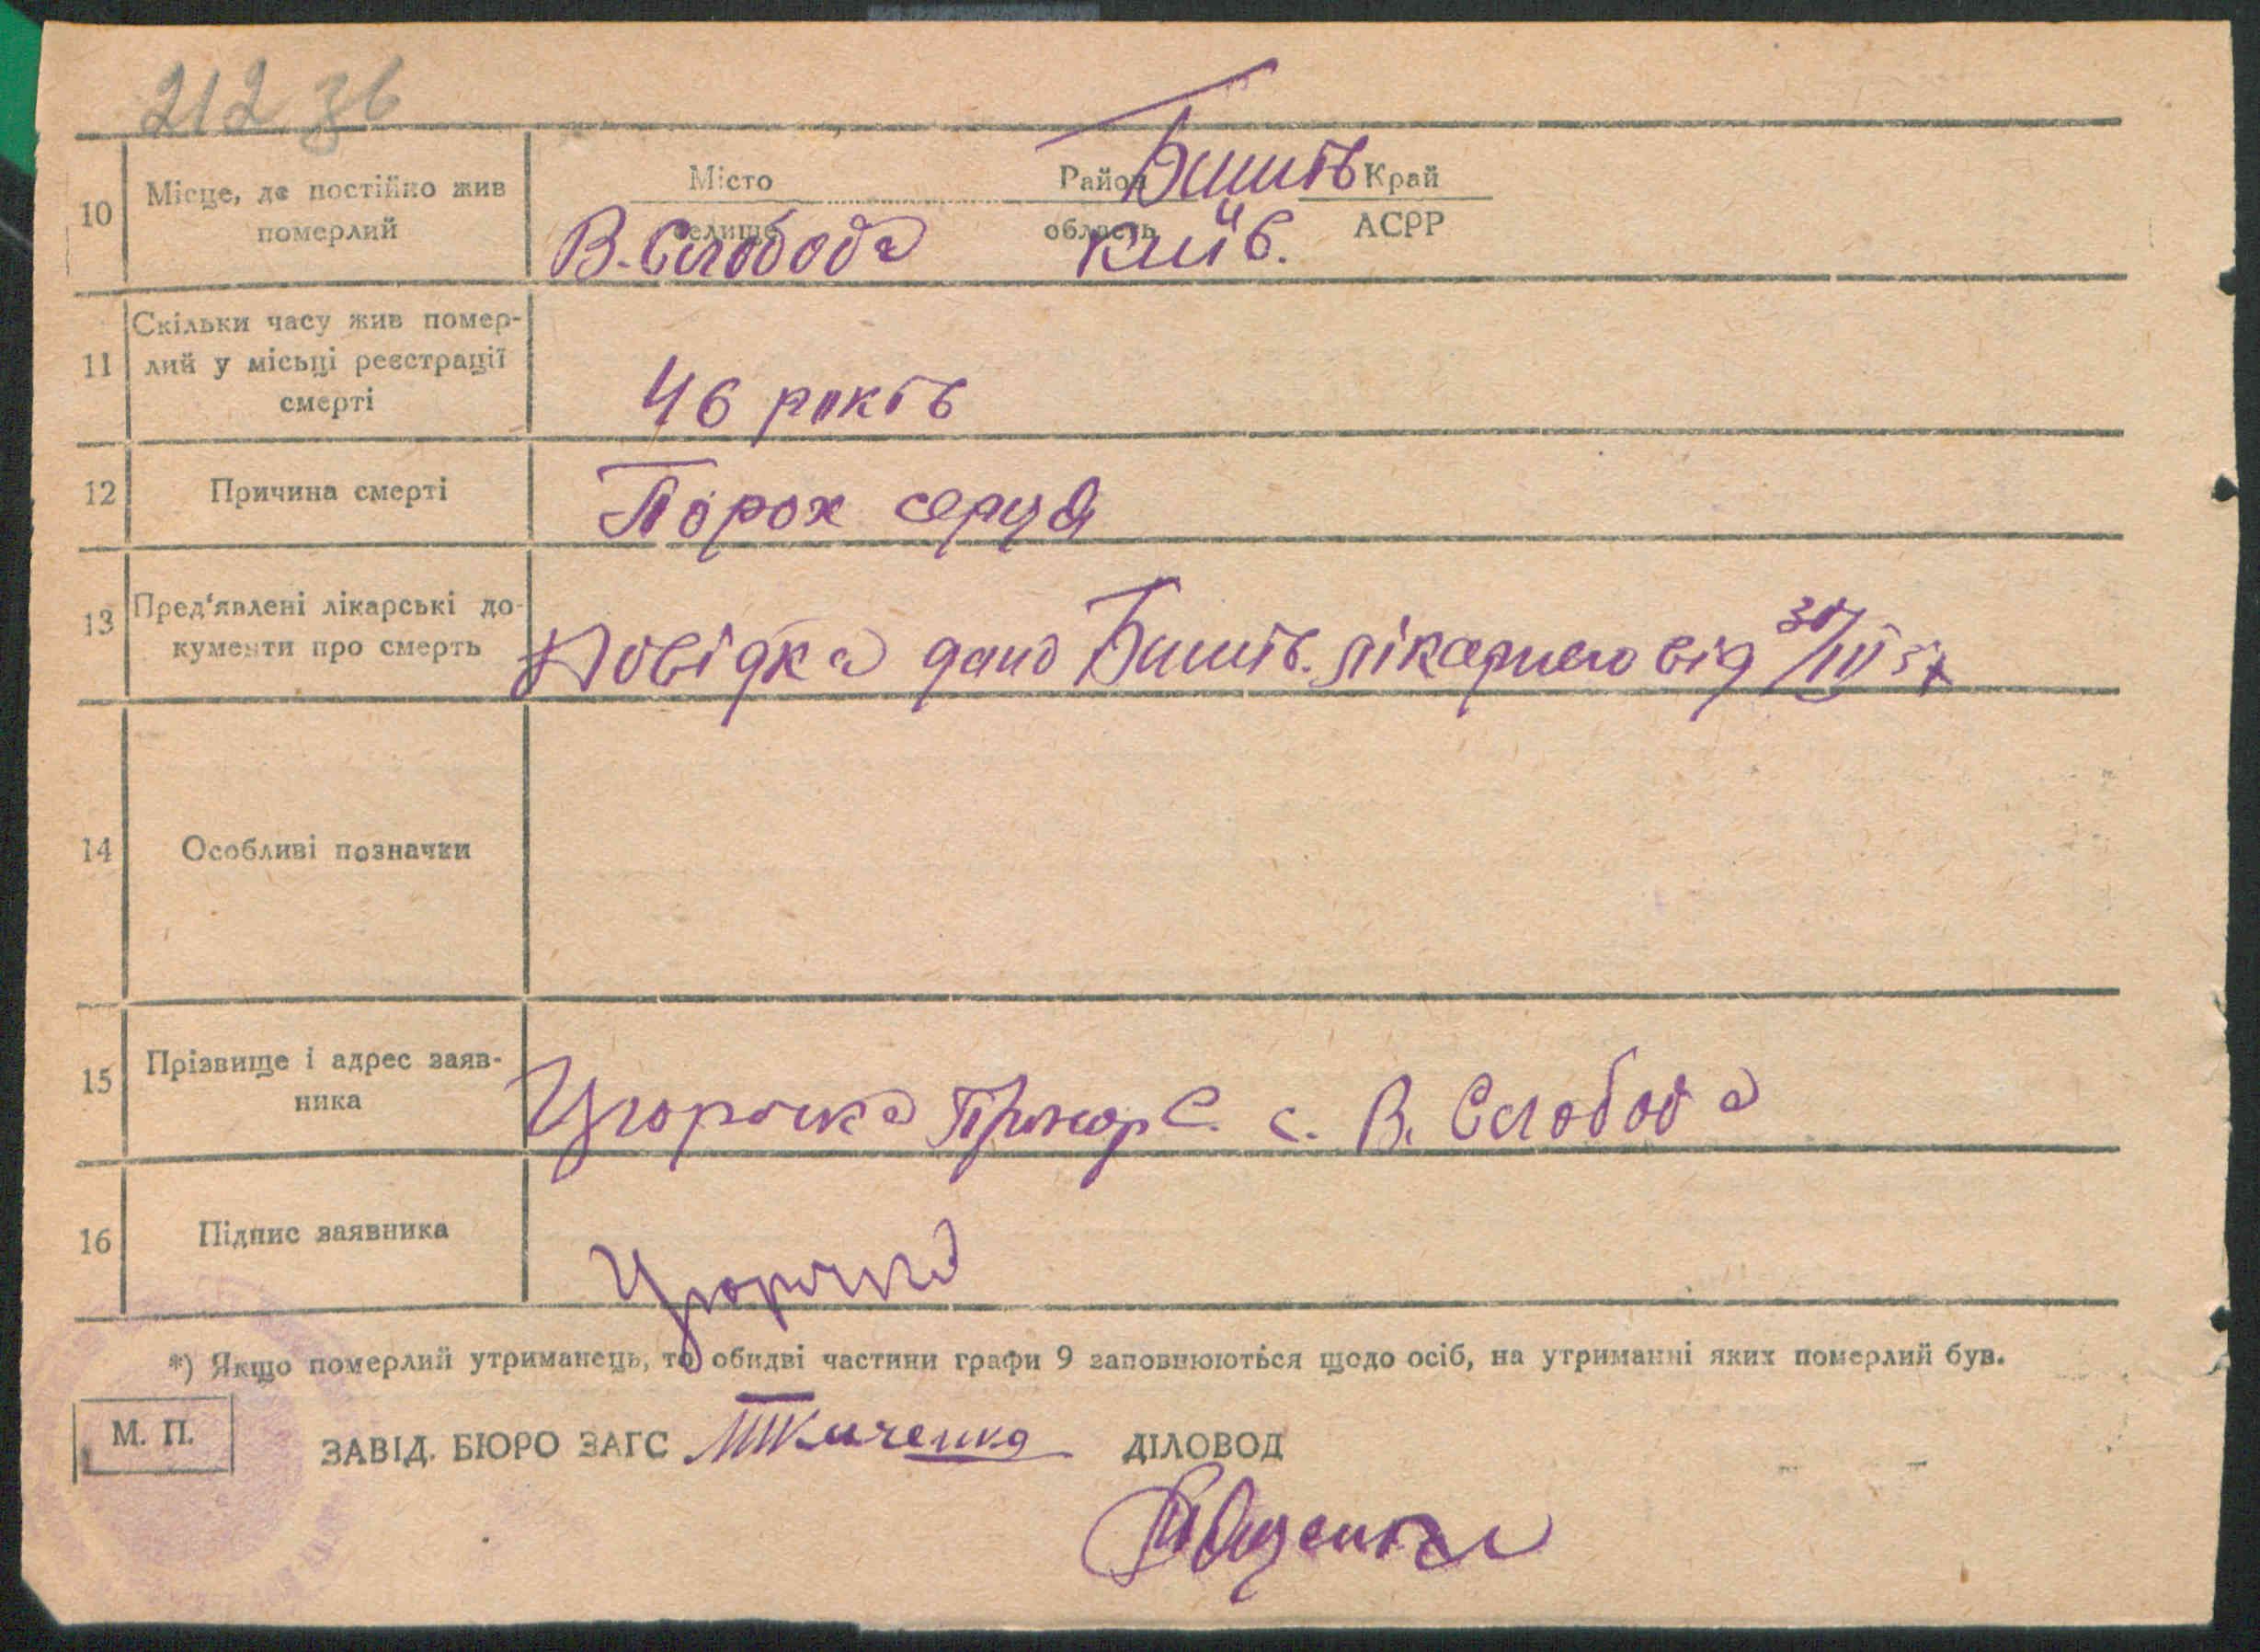 212 зб
10 Місце, де постійно жив померлий
Місто Район Бишів Край
селище область АСРР
В. Слобода Київ.
11 Скільки часу жив помер-
лий у місьці реєстрації
смерті
46 років
12 Причина смерті Порок серця
13 Пред'явлені лікарські до-
кументи про смерть
Довідка дана Бишів. лікарнею від
14 Особливі позначки
15 Прізвище і адрес заяв-
ника
с. В. Слобода
16 Підпис заявника
*) Якщо померлий утриманець, то обидві частини графи 9 заповнюються щодо осіб, на утриманні яких померлий був.
М. П.
ЗАВІД. БЮРО ЗАГС ДІЛОВОД